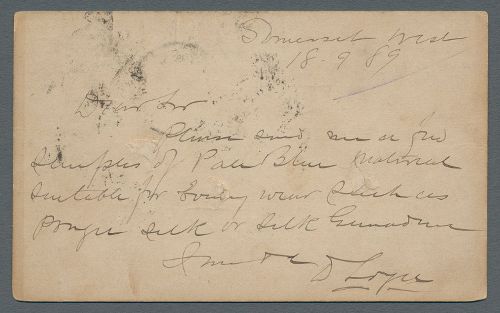 Somerset West
18.9.89
Dear Sir
Please send me a few
samples of Pale Blue material
suitable for Evening wear such as
pongee silk or silk Grenadine
D Loyer